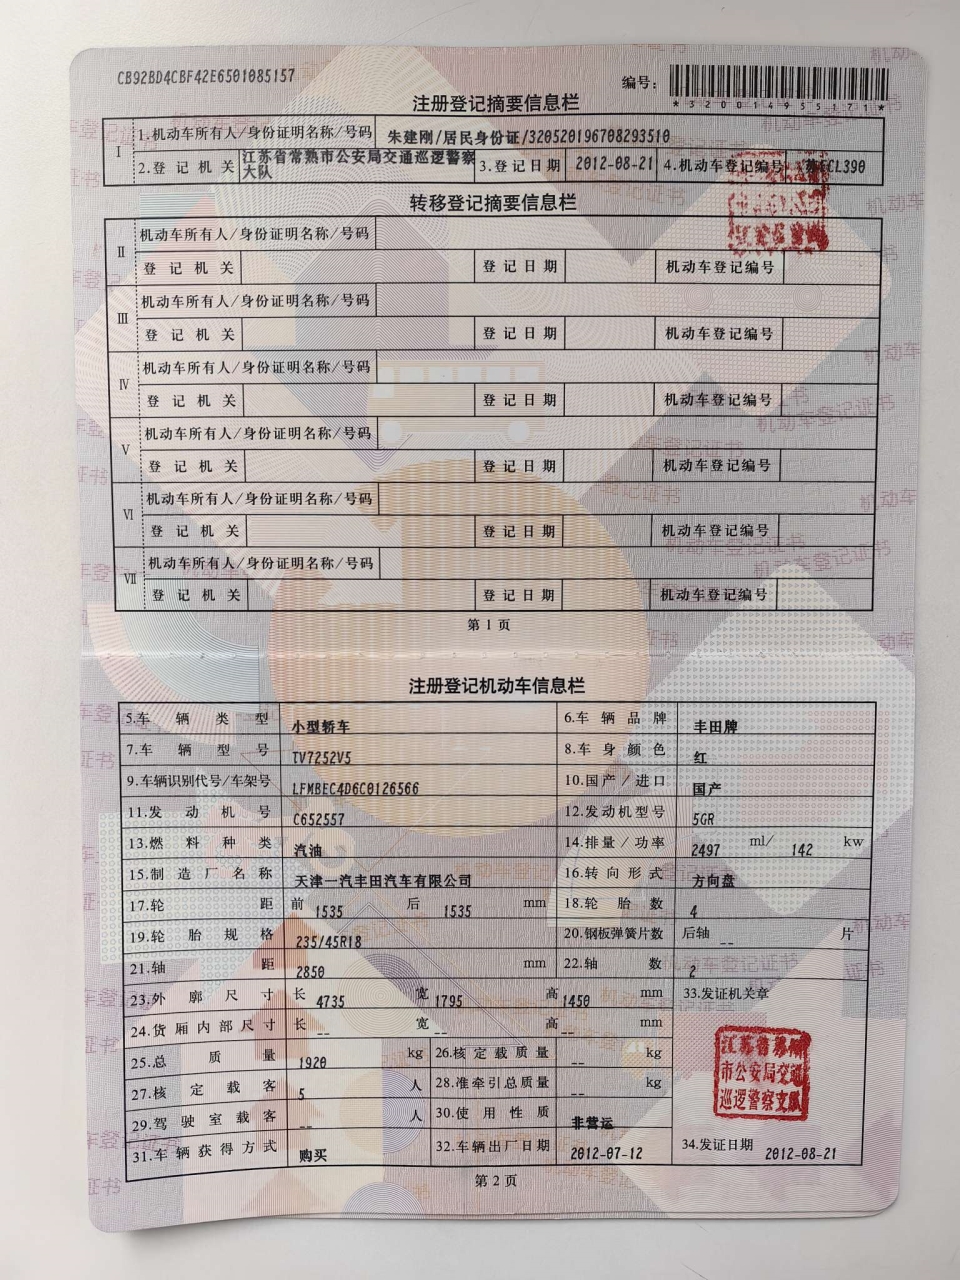 CB92BD4CBF42E6501085157
编号：
*320014955171*
注册登记摘要信息栏
I 1.机动车所有人/身份证明名称/号码 朱建刚/居民身份证/320520196708293510
2.登记机关 江苏省常熟市公安局交通巡逻警察大队 3.登记日期 2012-08-21 4.机动车登记编号 CL390
转移登记摘要信息栏
II 机动车所有人/身份证明名称/号码
登记机关 登记日期 机动车登记编号
III 机动车所有人/身份证明名称/号码
登记机关 登记日期 机动车登记编号
IV 机动车所有人/身份证明名称/号码
登记机关 登记日期 机动车登记编号
V 机动车所有人/身份证明名称/号码
登记机关 登记日期 机动车登记编号
VI 机动车所有人/身份证明名称/号码
登记机关 登记日期 机动车登记编号
VII 机动车所有人/身份证明名称/号码
登记机关 登记日期 机动车登记编号
第1页
注册登记机动车信息栏
5.车辆类型 小型轿车 6.车辆品牌 丰田牌
7.车辆型号 TV7252V5 8.车身颜色 红
9.车辆识别代号/车架号 LFMBEC4D6C0126566 10.国产/进口 国产
11.发动机号 C652557 12.发动机型号 5GR
13.燃料种类 汽油 14.排量/功率 2497 ml/ 142 kw
15.制造厂名称 天津一汽丰田汽车有限公司 16.转向形式 方向盘
17.轮距 前 1535 后 1535 mm 18.轮胎数 4
19.轮胎规格 235/45R18 20.钢板弹簧片数 后轴 -- 片
21.轴距 2850 mm 22.轴数 2
23.外廓尺寸 长 4735 宽 1795 高 1450 mm 33.发证机关章
24.货厢内部尺寸 长 -- 宽 -- 高 -- mm
25.总质量 1920 kg 26.核定载质量 -- kg
27.核定载客 5 人 28.准牵引总质量 -- kg
29.驾驶室载客 -- 人 30.使用性质 非营运
31.车辆获得方式 购买 32.车辆出厂日期 2012-07-12 34.发证日期 2012-08-21
江苏省苏州
市公安局交通
巡逻警察支队
第2页